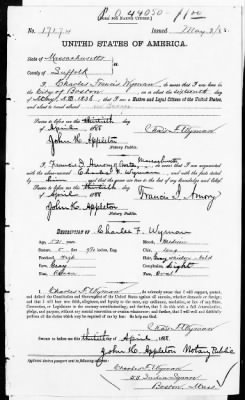 [FORM FOR NATIVE CITIZEN.]
No. 17174 Issued May 2/88
UNITED STATES OF AMERICA.
State of Massachusetts
County of Suffolk
I, Charles Francis Wyman, do swear that I was born in
the City of Boston, on or about the day
of May, A.D. 1836, that I am a Native and Loyal Citizen of the United States,
and about to travel abroad
Sworn to before me this thirtieth day
of April 1888
Chas F Wyman
John H. Appleton
Notary Public.
I, Francis I. Amory of Boston, Massachusetts, do swear that I am acquainted
with the above-named Charles F. Wyman, and with the facts
stated by him, and that the same are true to the best of my knowledge and belief.
Sworn to before me this thirtieth day
of April 1888
Francis I. Amory
John H. Appleton
Notary Public.
DESCRIPTION OF Charles F. Wyman
Age, 51 Mouth, Medium
Stature, Chin,
Forehead, High Hair,
Eyes, Gray Complexion, Light
Nose, Face, Oval
I, Charles F Wyman, do solemnly swear that I will support, protect,
and defend the Constitution and Government of the United States against all enemies, whether domestic or foreign;
and that I will bear true faith, allegiance, and loyalty to the same, any ordinance, resolution, or law of any State,
Convention, or Legislature to the contrary notwithstanding; and further, that I do this with a full determination,
pledge, and purpose, without any mental reservation or evasion whatsoever; and further, that I will well and faithfully
perform all the duties which may be required of me by law: So help me God.
Chas F Wyman
Sworn to before me this thirtieth day of April, 1888.
John H. Appleton Notary Public
Applicant desires passport to be sent to following address:
Charles F Wyman
Boston
Mass